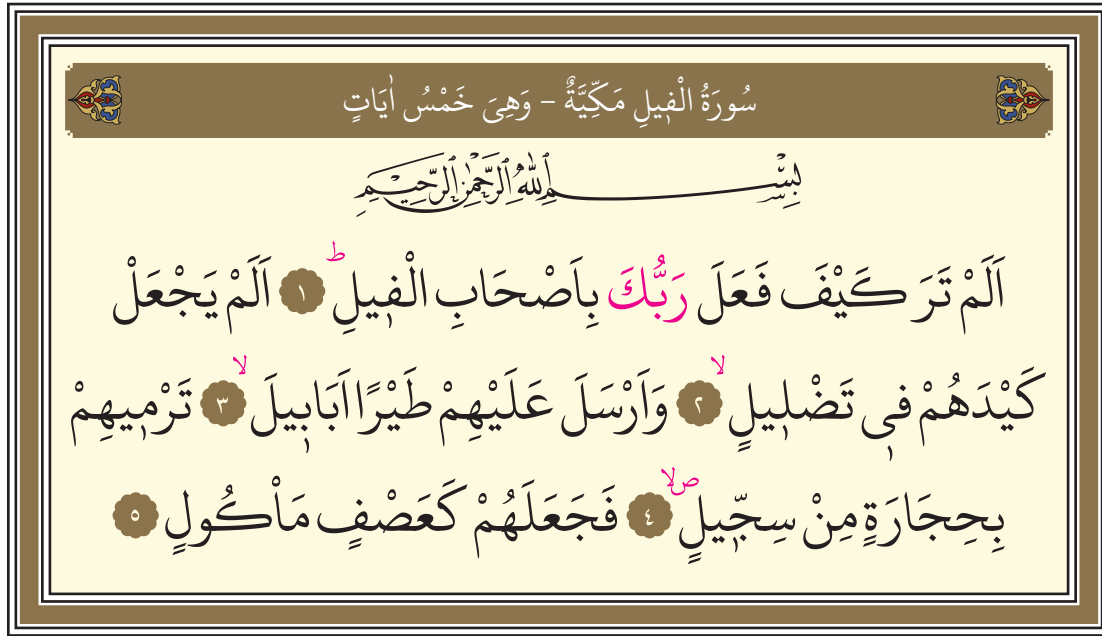 سُورَةُ الْف۪يلِ مَكِّيَّةٌ – وَهِىَ خَمْسُ اٰيَاتٍ
بِسْمِ اللّٰهِ الرَّحْمٰنِ الرَّح۪يمِ
اَلَمْ تَرَ كَيْفَ فَعَلَ رَبُّكَ بِاَصْحَابِ الْف۪يلِۜ ﴿١﴾ اَلَمْ يَجْعَلْ
كَيْدَهُمْ ف۪ي تَضْل۪يلٍۙ ﴿٢﴾ وَاَرْسَلَ عَلَيْهِمْ طَيْرًا اَبَاب۪يلَۙ ﴿٣﴾ تَرْم۪يهِمْ
بِحِجَارَةٍ مِنْ سِجّ۪يلٍۖۙ ﴿٤﴾ فَجَعَلَهُمْ كَعَصْفٍ مَاْكُولٍ ﴿٥﴾